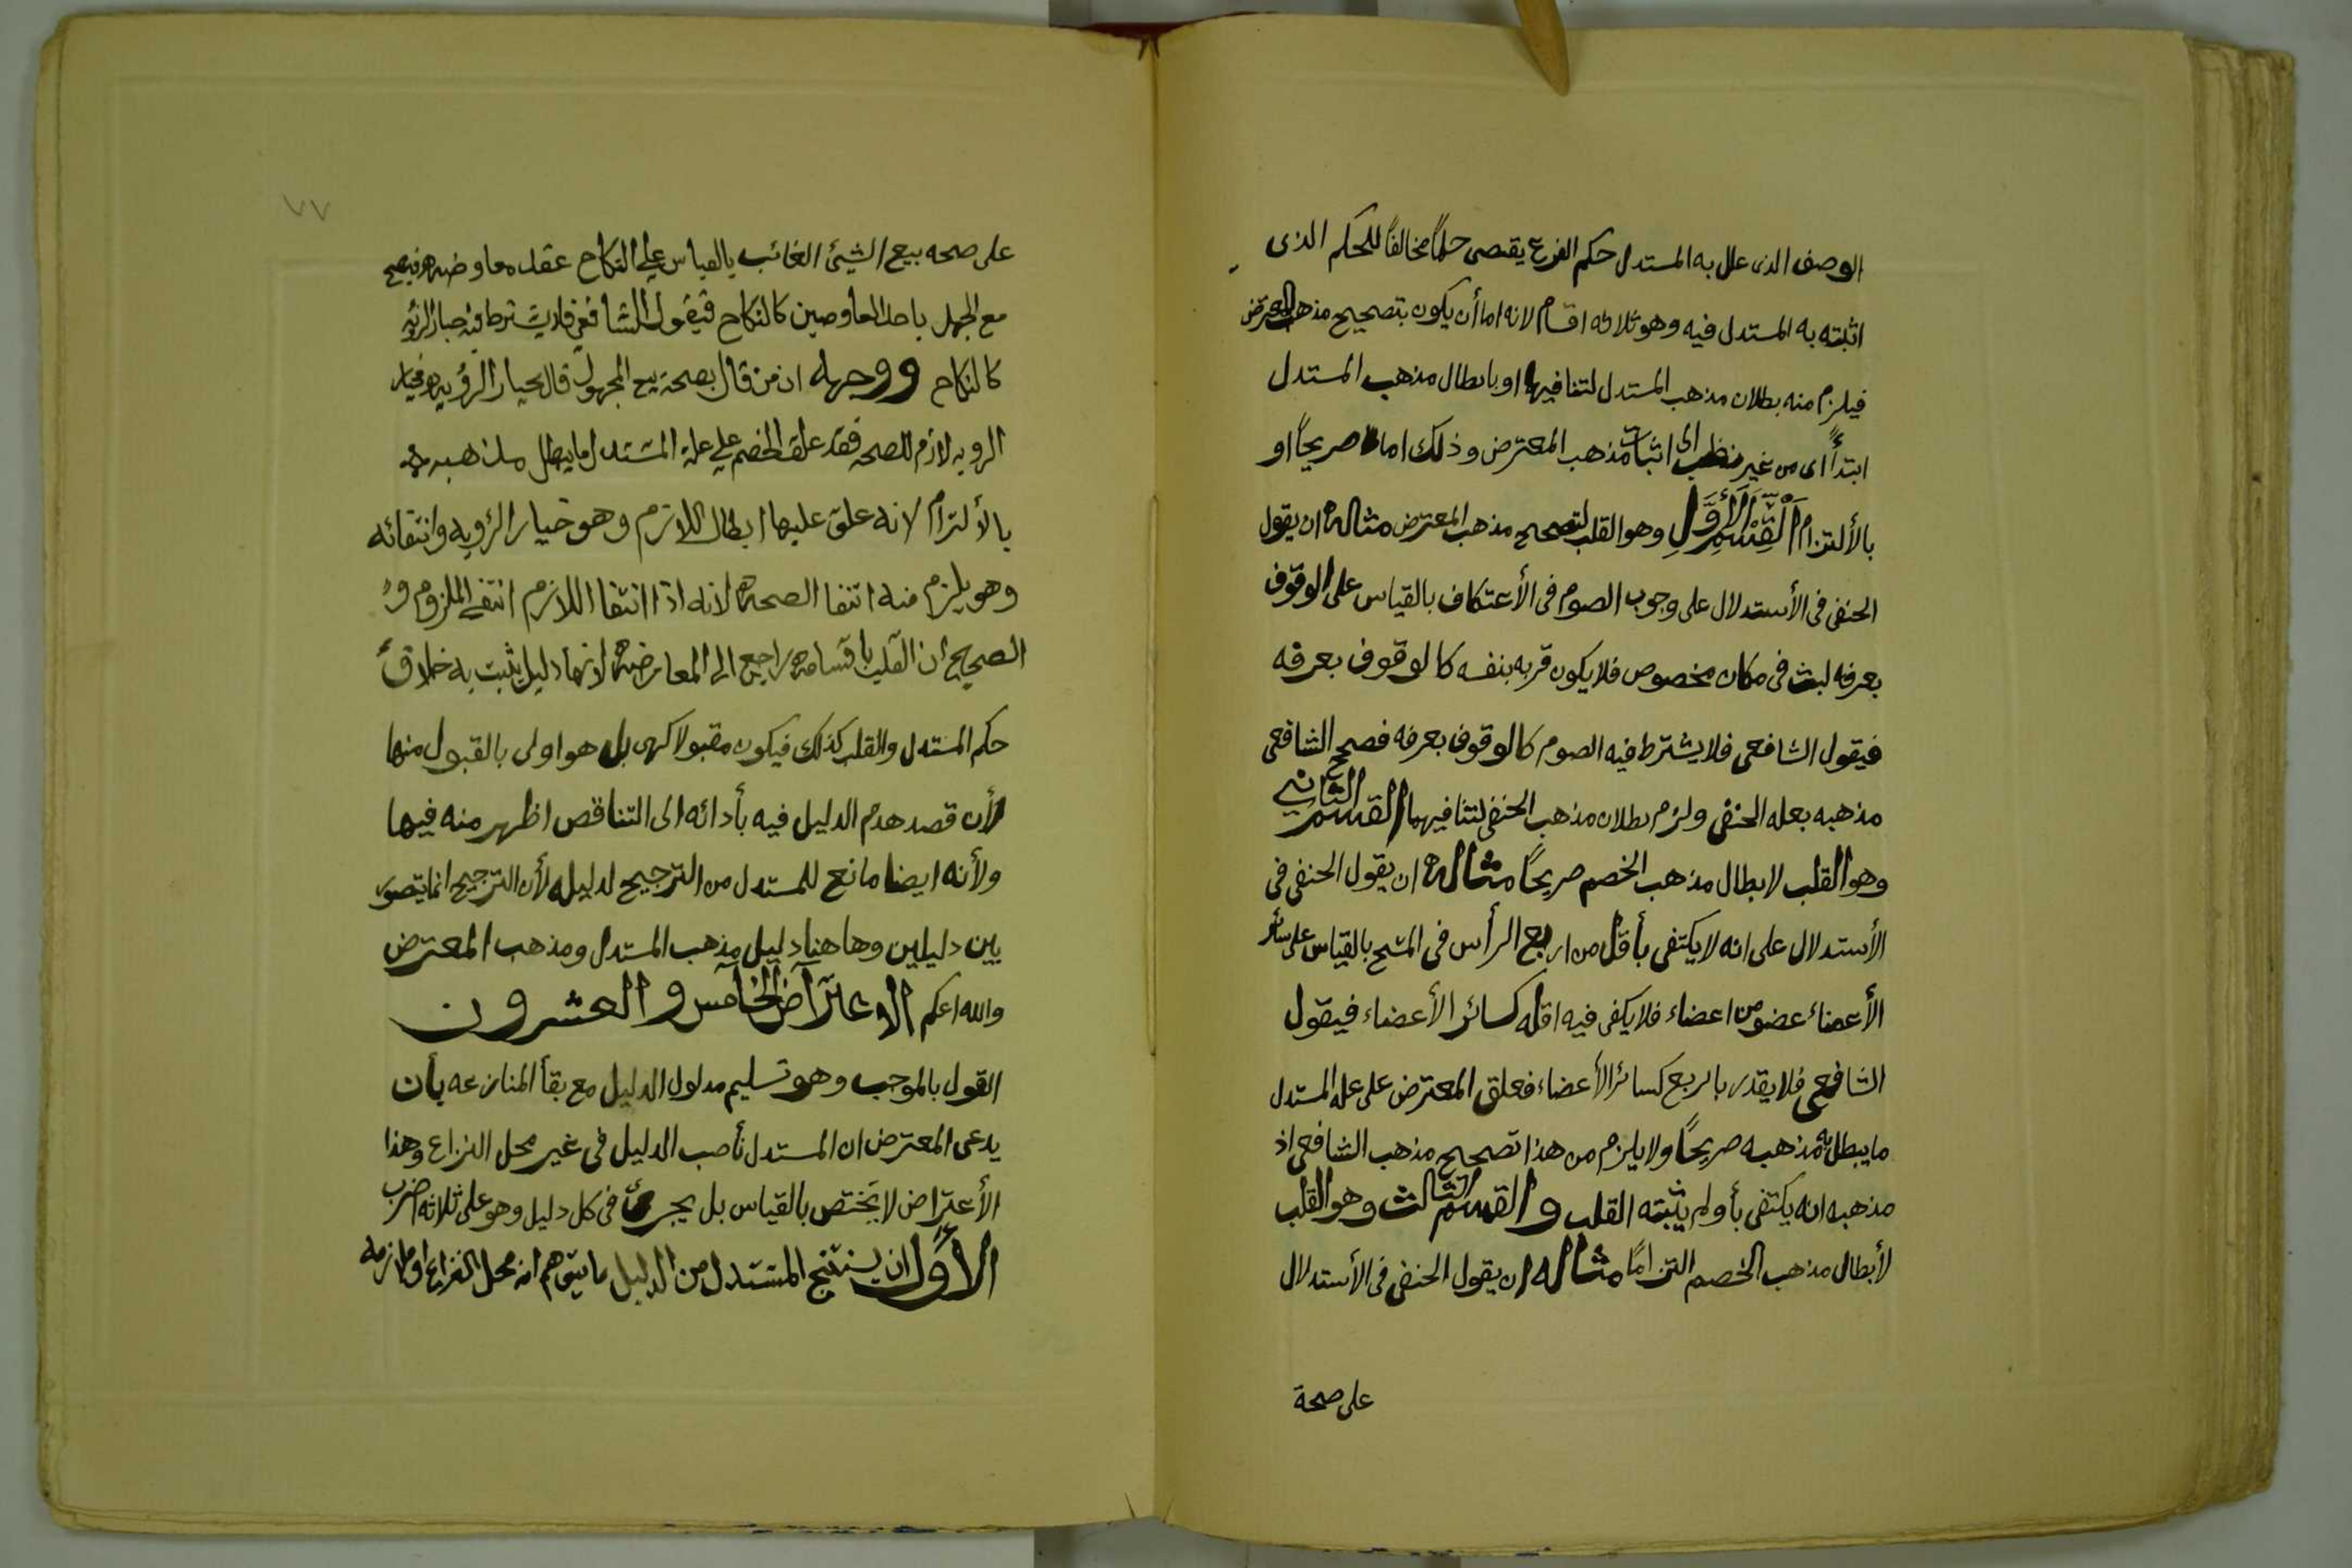 الوصف الذى علل به المستدل حكم الفرع يقتصى حكماً مخالفاً للحكم الذى
اثبته به المستدل فيه وهو ثلاثه اقسام لانه اما أن يكون بتصحيح مذهب المعترض
فيلزم منه بطلان مذهب المستدل لتنافيها او بابطال مذهب المستدل
ابتدأً اى من غير نظر الى اثبات مذهب المعترض وذلك اما صريحاً او
بالألتزام اَلْقِسْمِ الْأَوَّلِ وهو القلب لتصحيح مذهب المعترض مثاله ان يقول
الحنفى فى الأستدلال على وجوب الصوم فى الأعتكاف بالقياس على الوقوف
بعرفه لبث فى مكان مخصوص فلا يكون قربه بنفسه كالوقوف بعرفه
فيقول الشافعى فلا يشترط فيه الصوم كالوقوف بعرفه فصحح الشافعى
مذهبه بعله الحنفى ولزم بطلان مذهب الحنفى لتنافيهما القسم الثانى
وهو القلب لابطال مذهب الخصم صريحاً مثاله ان يقول الحنفى فى
الأستدلال على انه لا يكتفى بأقل من اربع الرأس فى المسح بالقياس على سائر
الأعضاء عضو من اعضاء فلا يكفى فيه اقله كسائر الأعضاء فيقول
الشافعى فلا يقدر بالربع كسائر الأعضاء فعلق المعترض على عله المستدل
ما يبطل به مذهبه صريحاً ولا يلزم من هذا تصحيح مذهب الشافعى اذ
مذهبه انه يكتفى بأ ولم يثبته القلب والقسم الثالث وهو القلب
لأبطال مذهب الخصم التزاماً مثاله ان يقول الحنفى فى الأستدلال
على صحة
٧٧
على صحه بيع الشيئ الغائب بالقياس على النكاح عقد معاوضه فيصح
مع الجهل باحد المعاوضين كالنكاح فيقول الشافعى فلا يشترط فيه خيار الرئيه
كالنكاح ووجهه ان من قال بصحة بيع المجهول قال بخيار الرؤيه فخيار
الرويه لازم للصحه فقد علق الخصم على علة المستدل ما يبطل مذهبه
بالألتزام لانه علق عليها ابطال اللازم وهو خيار الرؤيه وانتفائه
وهو يلزم منه انتفا الصحه لانه اذا انتفا اللازم انتفى الملزوم و
الصحيح ان القلب باقسامه راجع الى المعارضه لانها دليل يثبت به خلاف
حكم المستدل والقلب كذلك فيكون مقبولا كهى بل هو اولى بالقبول منها
لأن قصد هدم الدليل فيه بأدائه الى التناقص اظهر منه فيها
ولأنه ايضا مانع للمستدل من الترجيح لدليله لأن الترجيح انما يتصور
بين دليلين وها هنا دليل مذهب المستدل ومذهب المعترض
والله اعكم الاعتراض الخامس والعشرون
القول بالموجب وهو تسليم مدلول الدليل مع بقأ المنازعه بأن
يدعى المعترض ان المستدل نأصب الدليل فى غير محل النزاع وهذا
الأعتراض لا يختص بالقياس بل يجرى فى كل دليل وهو على ثلاثه اضرب
الأوَّل ان يستنتج المستدل من الدليل ما يتوهم انه محل النزاع او ملازمه